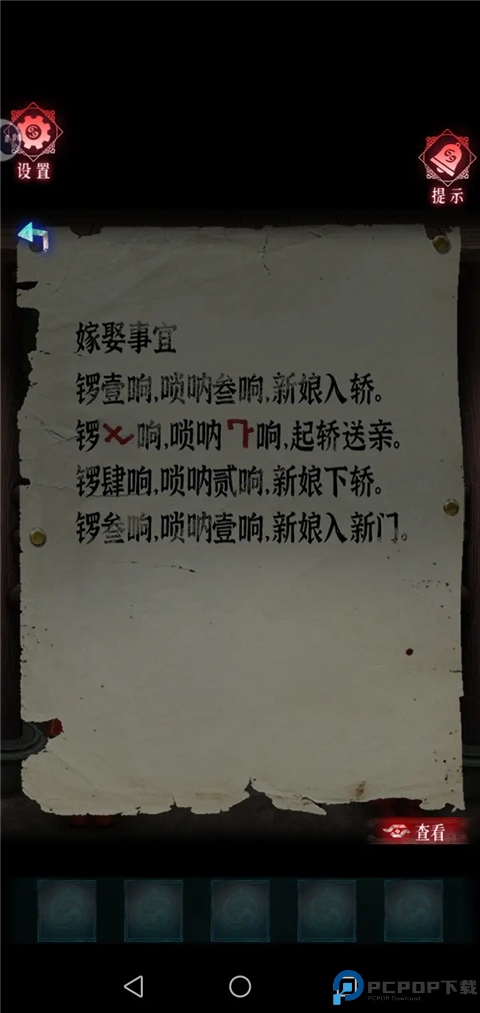 设置
提示
嫁娶事宜
锣壹响,唢呐叁响,新娘入轿。
锣 响,唢呐 响,起轿送亲。
锣肆响,唢呐贰响,新娘下轿。
锣叁响,唢呐壹响,新娘入新门。
查看
PCPOP下载
PCPOP Download